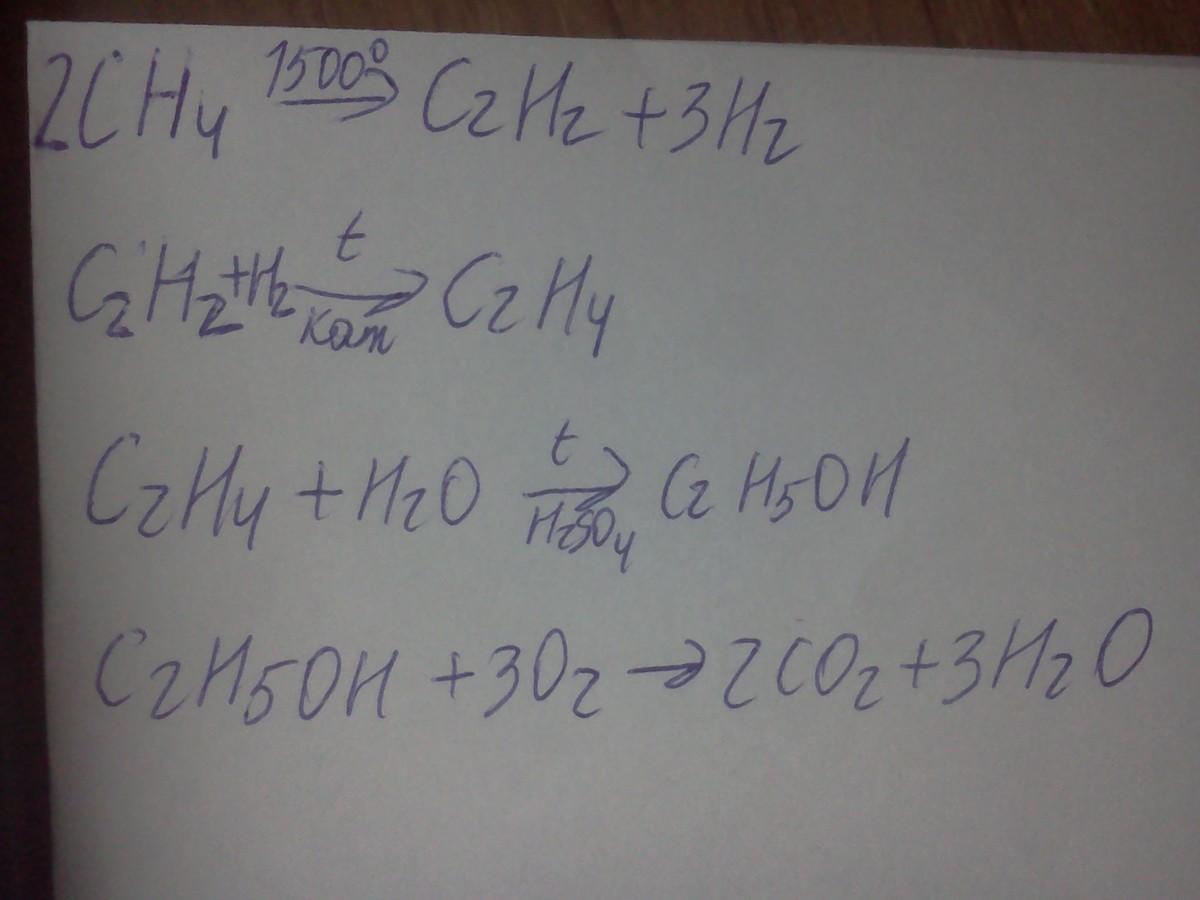 2CH4 1500° → C2H2 + 3H2
C2H2 + H2 t → кат C2H4
C2H4 + H2O t → H2SO4 C2H5OH
C2H5OH + 3O2 → 2CO2 + 3H2O